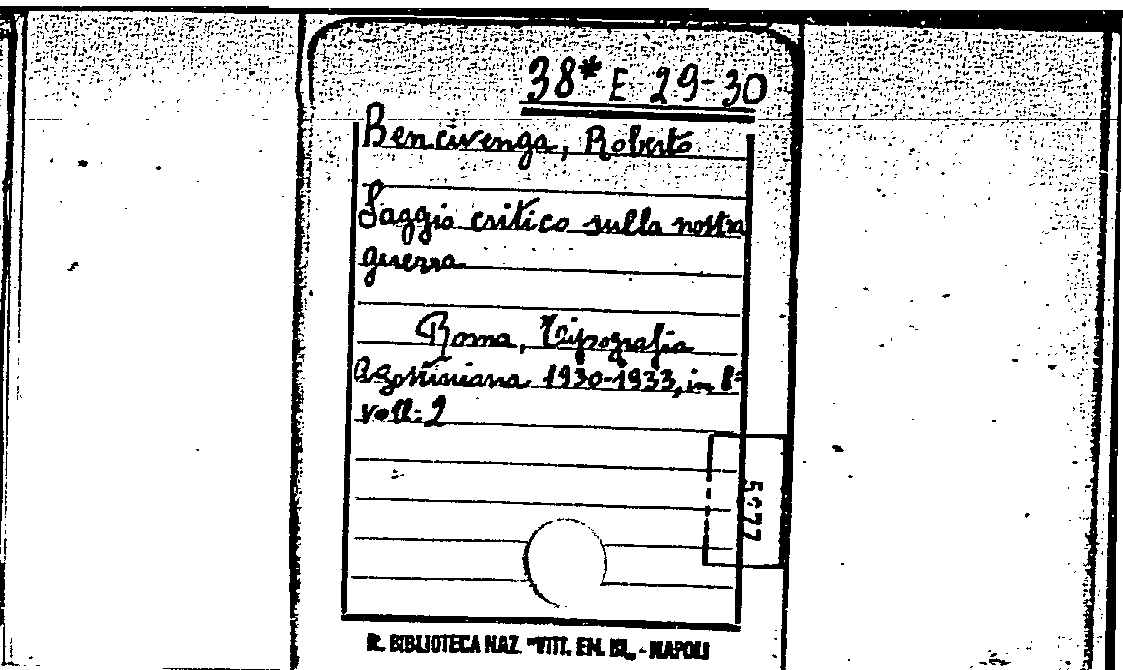 38* E 29-30
Bencivenga, Roberto
Saggio critico sulla nostra
guerra
Roma, Tipografia
Agostiniana 1930-1933, in 8°
voll. 2
5977
R. BIBLIOTECA NAZ. "VITT. EM. III„ - NAPOLI